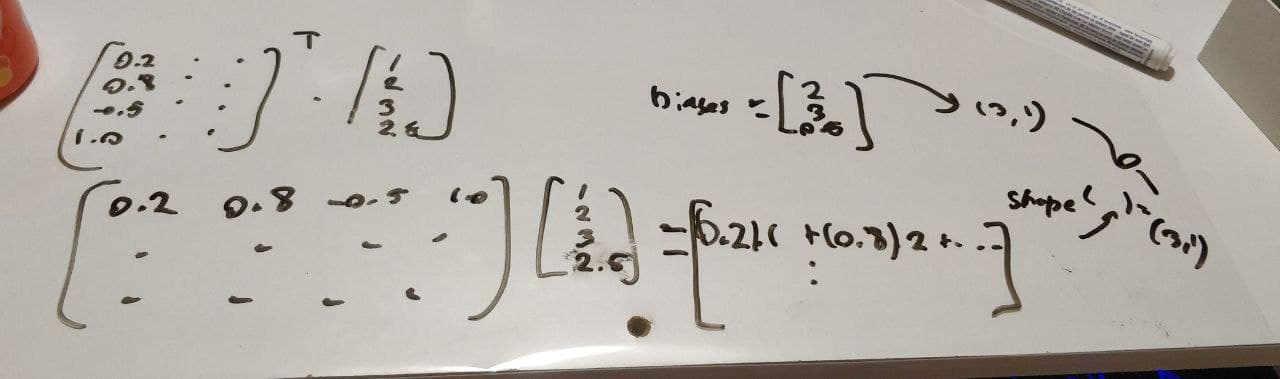 [0.2 . .
0.8 . .
-0.5 . .
1.0 . .]ᵀ . [1
2
3
2.5]
biases = [2
3
0.5] → (3,1)
[0.2 0.8 -0.5 1.0
- - - -
- - - -] [1
2
3
2.5] = [(0.2)1 + (0.8)2 + . . -
⋮]
shape( ) = (3,1)